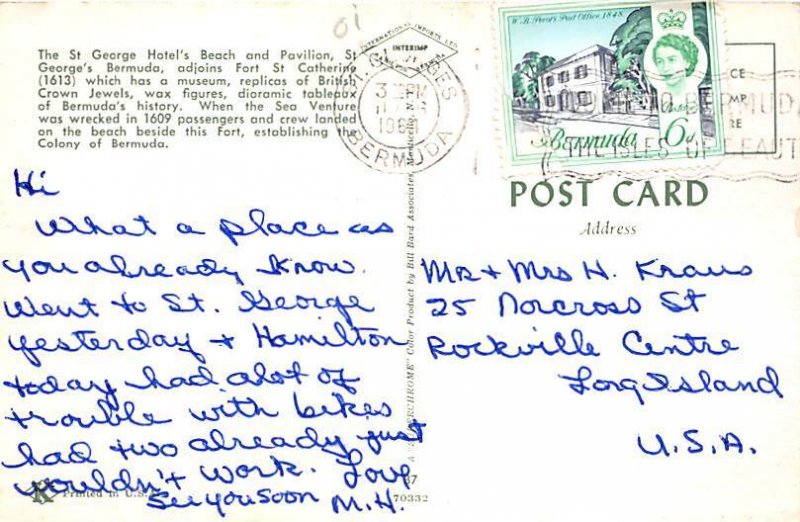 The St George Hotel's Beach and Pavilion, St
George's Bermuda, adjoins Fort St Catherine
(1613) which has a museum, replicas of British
Crown Jewels, wax figures, dioramic tableaux
of Bermuda's history. When the Sea Venture
was wrecked in 1609 passengers and crew landed
on the beach beside this Fort, establishing the
Colony of Bermuda.
Hi
What a place as
you already know.
Went to St. George
yesterday + Hamilton
today had alot of
trouble with bikes
had two already just
wouldn't work. Love
See you soon M.H.
Printed in U.S.
37
70332
INTERNATIONAL IMPORTS LTD.
INTERIMP
BERMUDA
3 PM
W.B. Perot's Post Office, 1848.
Bermuda
6d
BERMUDA
THE ISLES OF BEAUT
POST CARD
Address
Mr + Mrs H. Kraus
25 Norcross St
Rockville Centre
Long Island
U.S.A.
Color Product by Bill Bard Associates, Monticello, N.